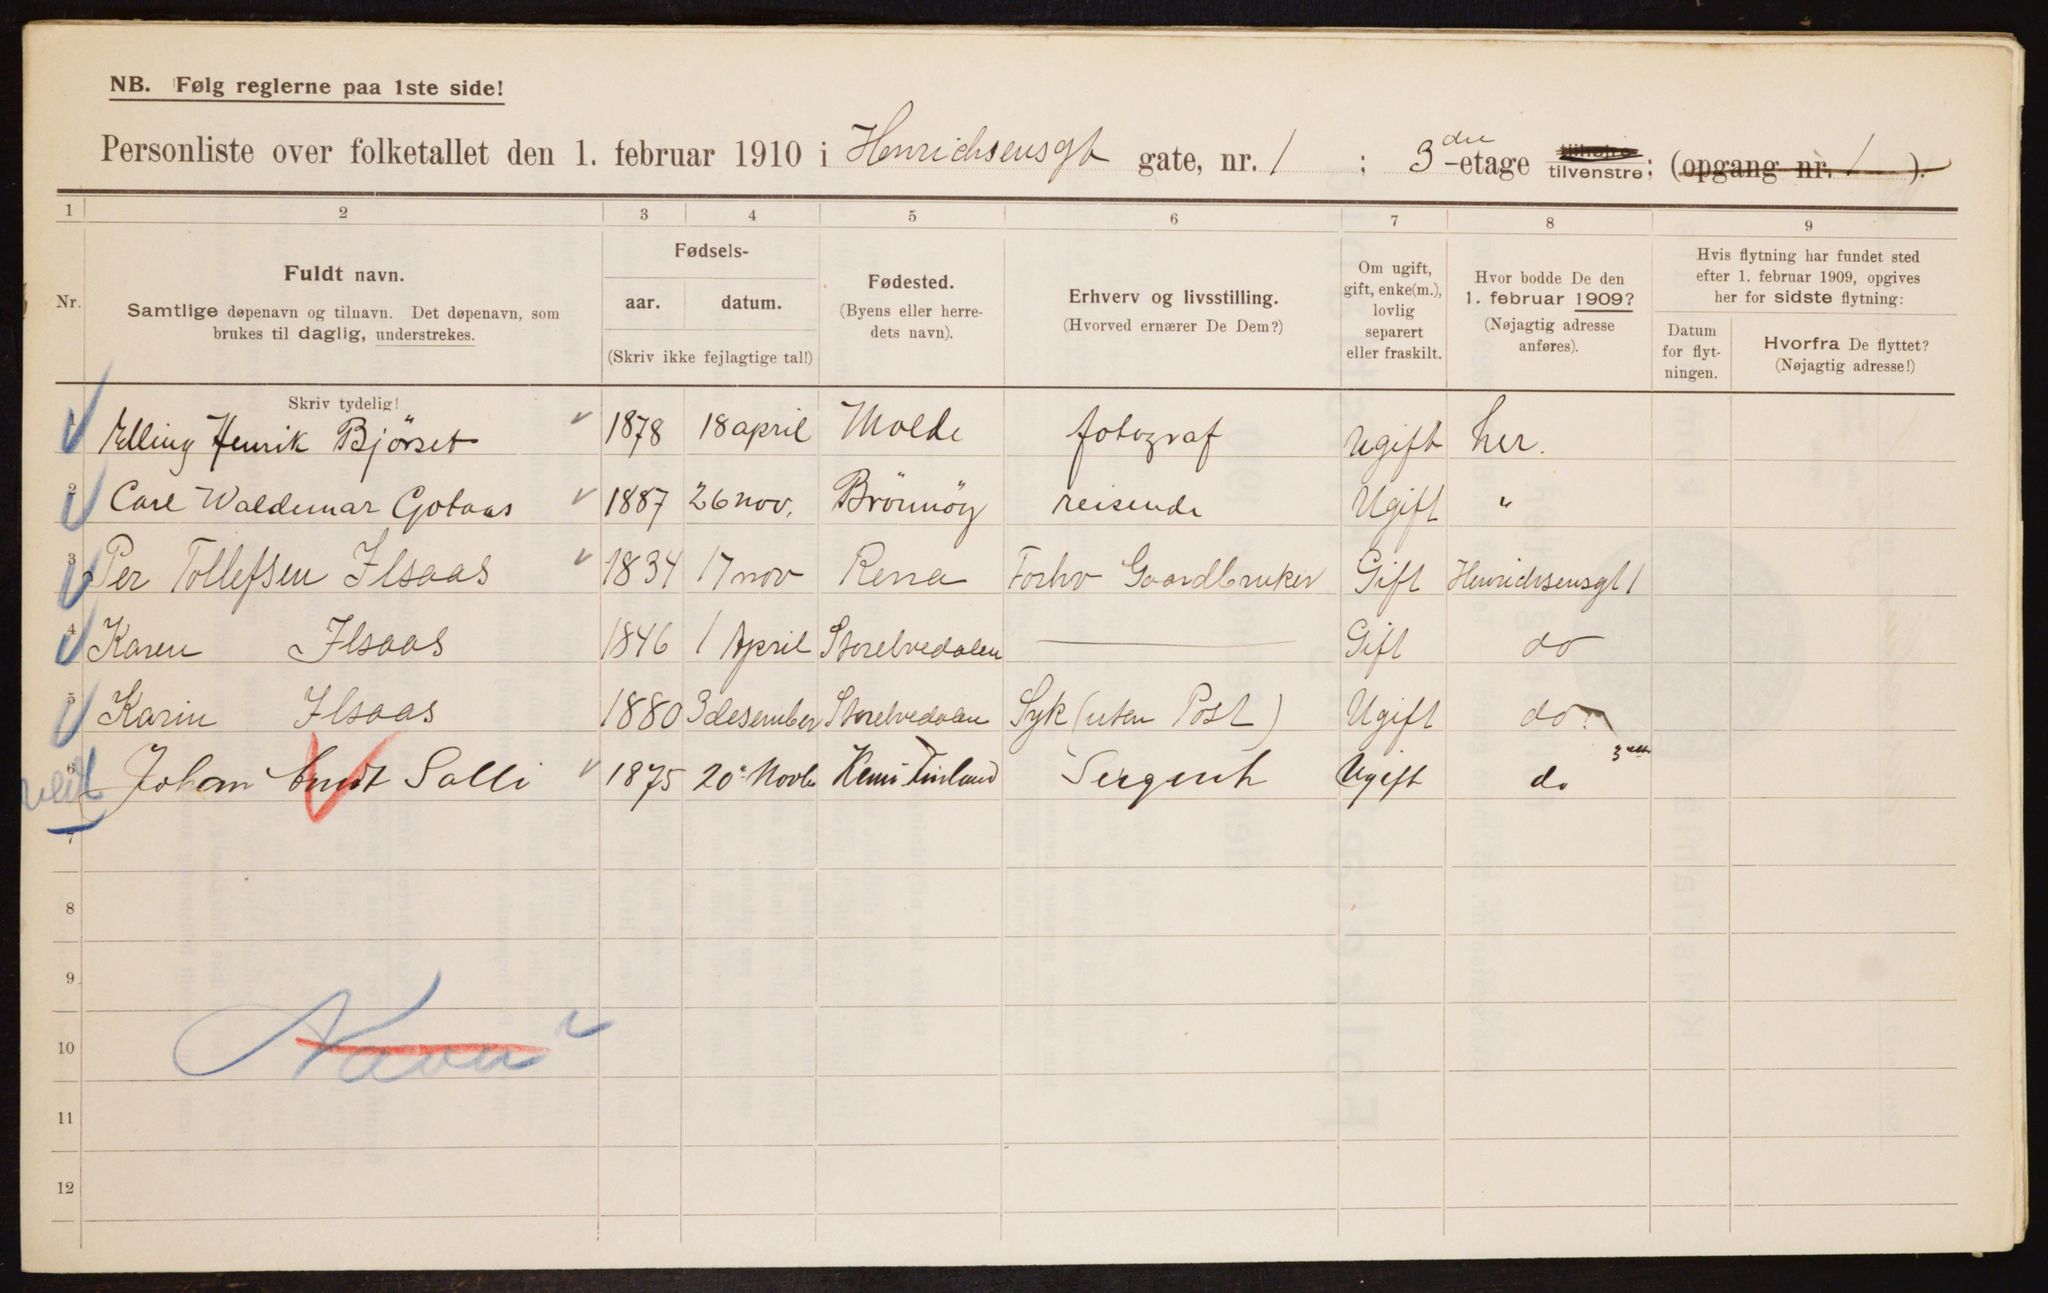 NB. Følg reglerne paa 1ste side!
Personliste over folketallet den 1. februar 1910 i Henrichsensgt gate, nr. 1 ; 3die-etage tilhøire tilvenstre; (opgang nr. 1 ).
1 2 3 4 5 6 7 8 9
Nr.
Fuldt navn.
Samtlige døpenavn og tilnavn. Det døpenavn, som
brukes til daglig, understrekes.
Skriv tydelig!
Fødsels-
aar. datum.
(Skriv ikke fejlagtige tal!)
Fødested.
(Byens eller herre-
dets navn).
Erhverv og livsstilling.
(Hvorved ernærer De Dem?)
Om ugift,
gift, enke(m.),
lovlig
separert
eller fraskilt.
Hvor bodde De den
1. februar 1909?
(Nøjagtig adresse
anføres).
Hvis flytning har fundet sted
efter 1. februar 1909, opgives
her for sidste flytning:
Datum
for flyt-
ningen.
Hvorfra De flyttet?
(Nøjagtig adresse!)
1 Elling Henrik Bjørset 1878 18 april Molde fotograf Ugift her.
2 Carl Waldemar Gotaas 1887 26 nov. Brönnöy reisende Ugift "
3 Per Tollefsen Ilsaas 1834 17 nov Rena Forhv Gaardbruker Gift Henrichsensgt 1
4 Karen Ilsaas 1846 1 April Storelvedalen — Gift do
5 Karin Ilsaas 1880 3 desember Storelvedalen Syk (uten Post) Ugift do
6 Johan Ernst Salli 1875 20 Novbr Kemi Finland Sergent Ugift do
7
8
9
10
11
12